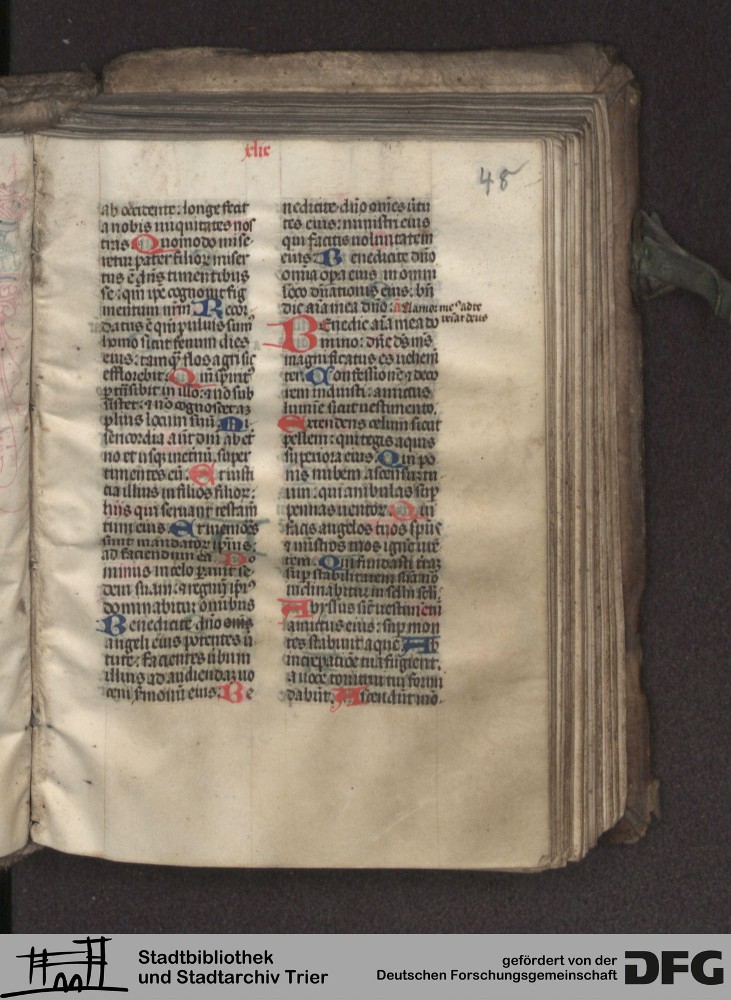 xlix
48
ab occidente: longe fecit
a nobis iniquitates nos
tras Quomodo mise-
retur pater filiorū miser
tus ē dn̄s timentibus
se: qm̄ ip̄e cognouit fig
mentum nr̄m Recor
datus ē qm̄ puluis sum⁹
homo sicut fenum dies
eius: tamq̄ flos agri sic
efflorebit: Qm̄ sp̄us
ꝑtrāsibit in illo: ⁊ nō sub
sistet: ⁊ nō cognoscet a
plius locum suū Mi
sericordia aūt dn̄i ab et̄
no et usq̄ in et̄nū super
timentes eū: Et iusti
cia illius in filios filioꝝ:
hiis qui seruant testam̄
tum eius Et memores
sunt mandatoꝝ ip̄ius:
ad faciendum ea Do
minus in celo ꝑauit se
dem suam: ⁊ regnū ip̄i⁹
dominabitur omnibus
Benedicite dn̄o om̄s
angeli eius potentes ū
tute: facientes ūbum
illius ad audiendā uo
cem sermonū eius: Be
nedicite dn̄o om̄es ūtu
tes eius: ministri eius
qui facitis uoluntatem
eius Benedicite dn̄o
omīa oꝑa eius in omni
loco dn̄ationis eius: bn̄
dic aīa mea dn̄o:
Benedic aīa mea do
mino: dn̄e ds̄ m̄s
magnificatus es uehem̄
ter: Confessionē ⁊ deco
rem induisti: amictus
lumīe sicut uestimento.
Extendens celum sicut
pellem: qui tegis aquis
suꝑiora eius Qui po
nis nubem ascensum tu
um: qui ambulas suꝑ
pennas uentoꝝ Qui
facis angelos tuos sp̄us
⁊ mīstros tuos ignē ure
tem Qui fundasti t̄rā
suꝑ stabilitatem suā: nō
inclinabitur in sclm̄ scl̄i
Abyssus sic̄ uestimētū
amictus eius: suꝑ mon
tes stabunt aque Ab
increpatiōe tua fugient.
a uoce tonitrui tui formi
dabūt. Ascendūt mō-
Stadtbibliothek
und Stadtarchiv Trier
gefördert von der
Deutschen Forschungsgemeinschaft
DFG